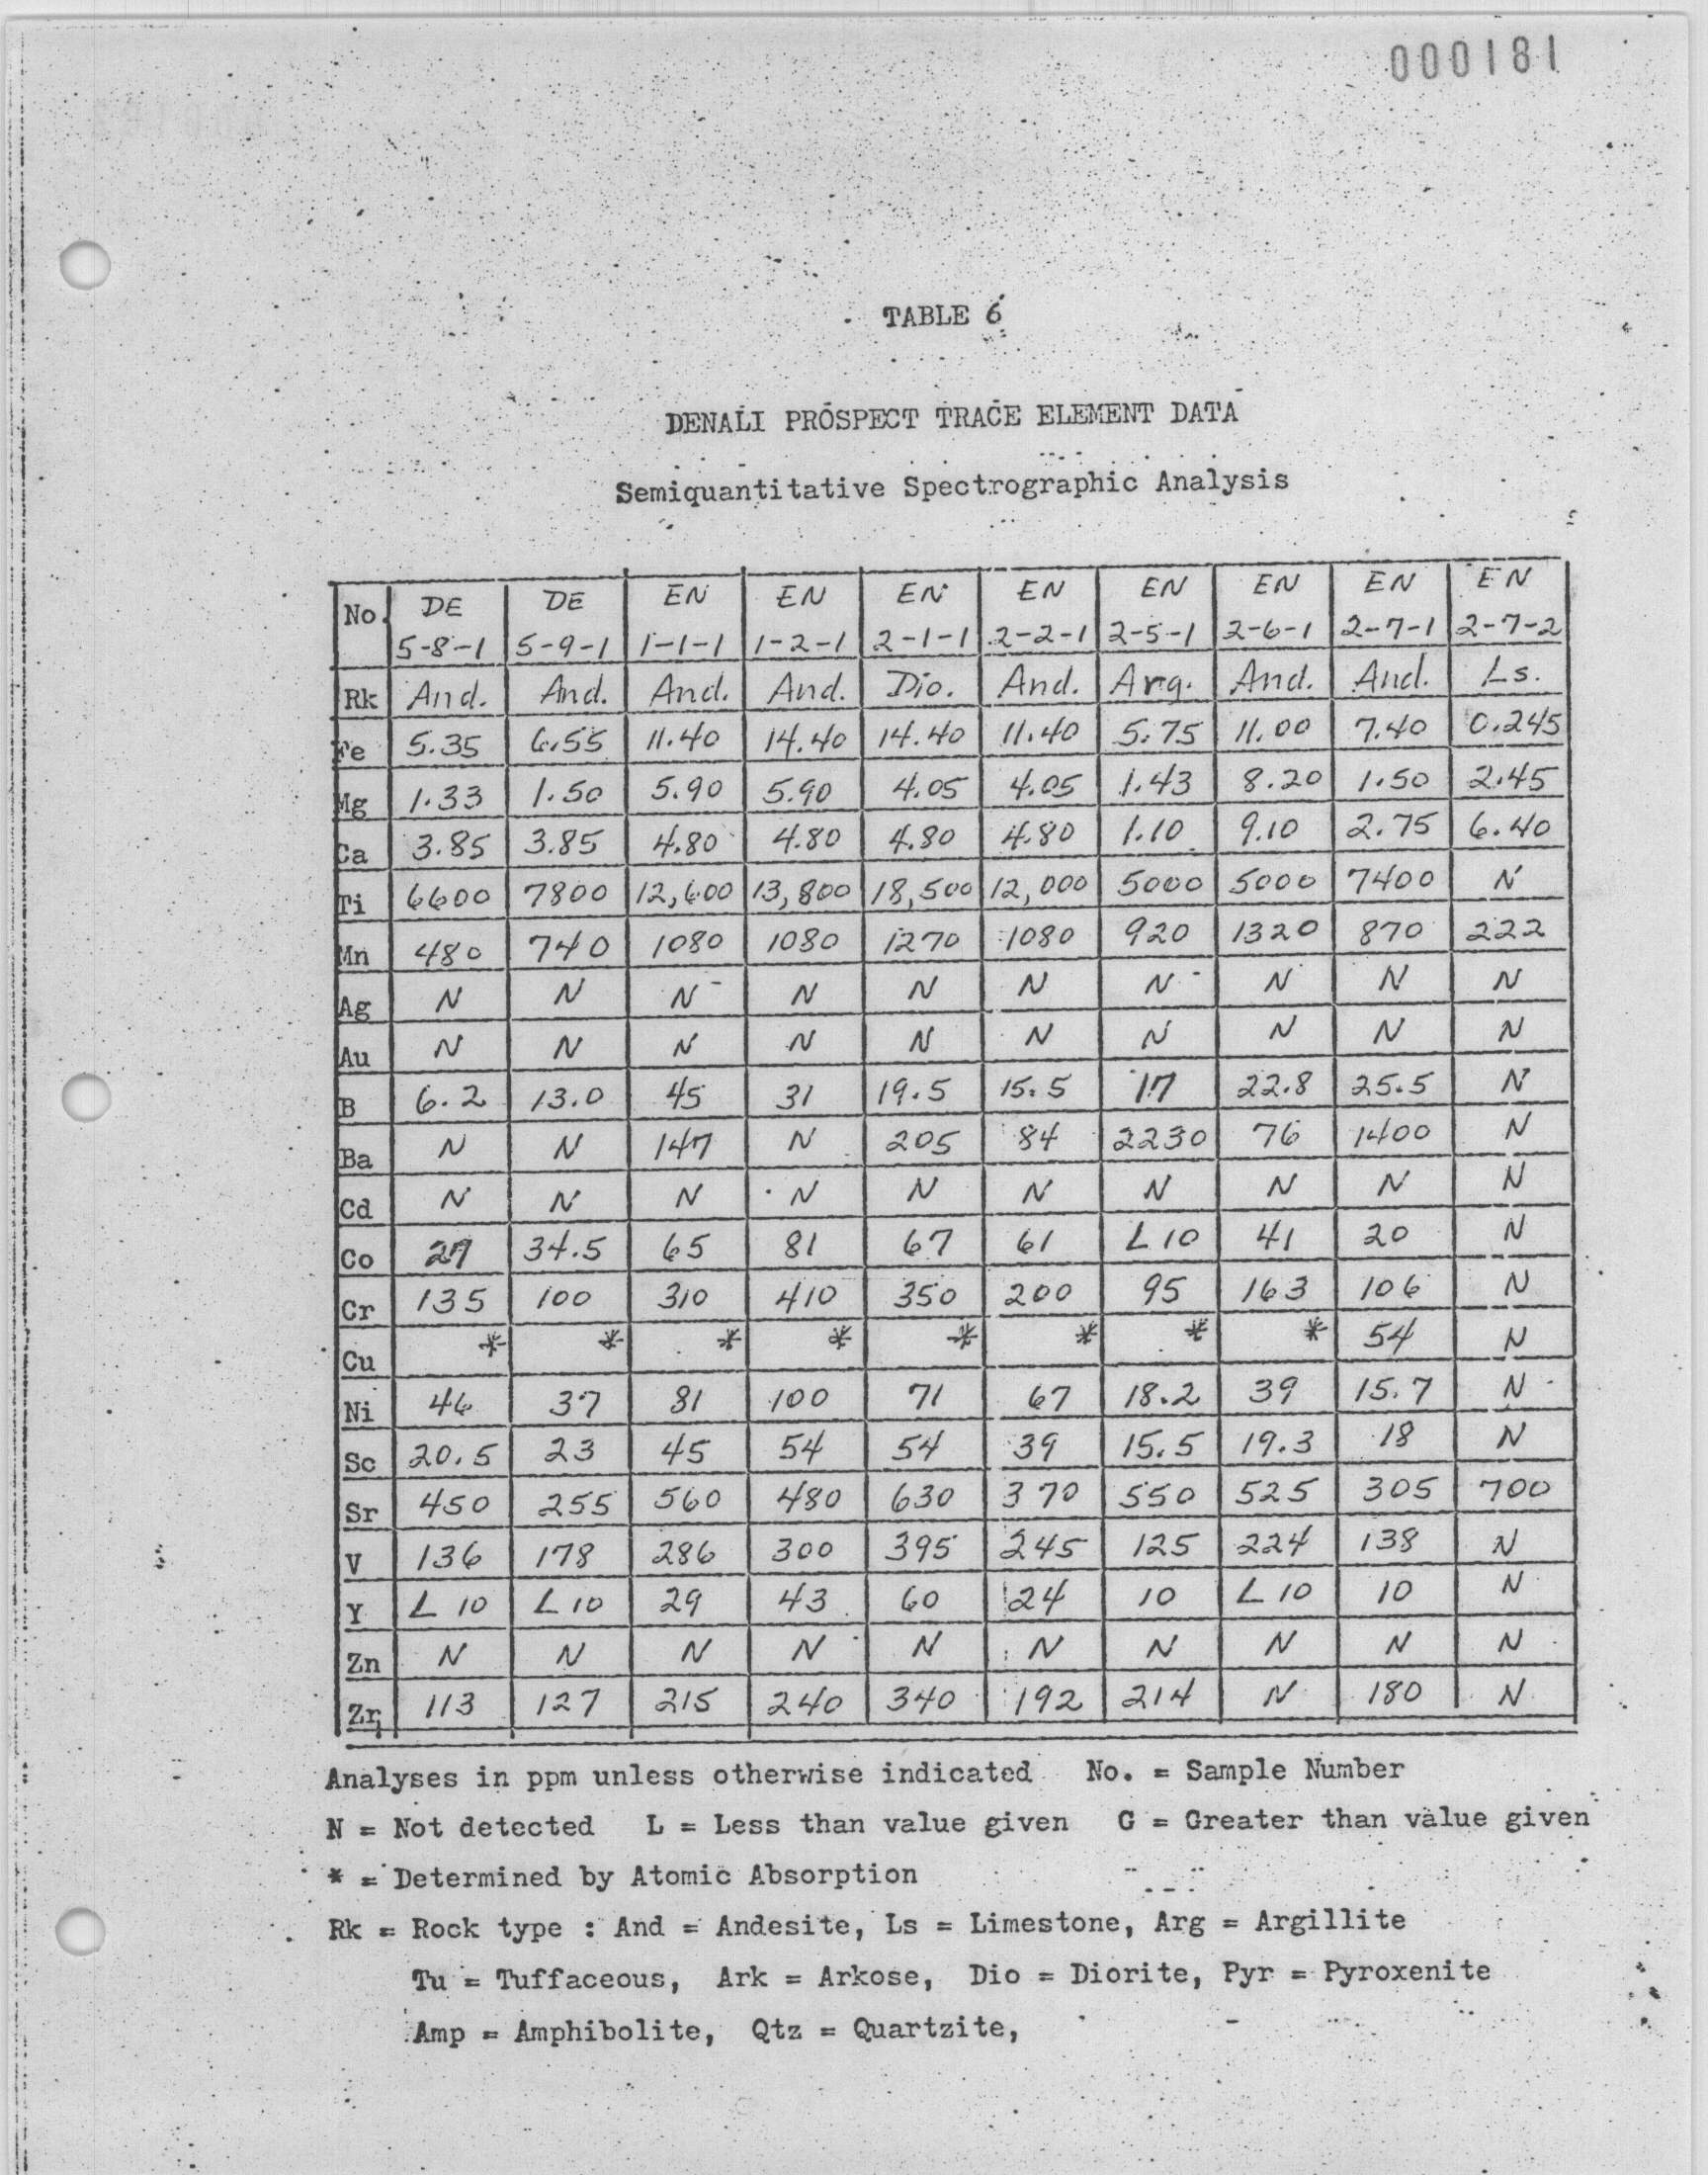 000181
TABLE 6
DENALI PROSPECT TRACE ELEMENT DATA
Semiquantitative Spectrographic Analysis
No. DE 5-8-1 DE 5-9-1 EN 1-1-1 EN 1-2-1 EN 2-1-1 EN 2-2-1 EN 2-5-1 EN 2-6-1 EN 2-7-1 EN 2-7-2
Rk And. And. And. And. Dio. And. Arg. And. And. Ls.
Fe 5.35 6.55 11.40 14.40 14.40 11.40 5.75 11.00 7.40 0.245
Mg 1.33 1.50 5.90 5.90 4.05 4.05 1.43 8.20 1.50 2.45
Ca 3.85 3.85 4.80 4.80 4.80 4.80 1.10 9.10 2.75 6.40
Ti 6600 7800 12,600 13,800 18,500 12,000 5000 5000 7400 N
Mn 480 740 1080 1080 1270 1080 920 1320 870 222
Ag N N N N N N N N N N
Au N N N N N N N N N N
B 6.2 13.0 45 31 19.5 15.5 17 22.8 25.5 N
Ba N N 147 N 205 84 2230 76 1400 N
Cd N N N N N N N N N N
Co 27 34.5 65 81 67 61 L 10 41 20 N
Cr 135 100 310 410 350 200 95 163 106 N
Cu * * * * * * * * 54 N
Ni 46 37 81 100 71 67 18.2 39 15.7 N
Sc 20.5 23 45 54 54 39 15.5 19.3 18 N
Sr 450 255 560 480 630 370 550 525 305 700
V 136 178 286 300 395 245 125 224 138 N
Y L 10 L 10 29 43 60 24 10 L 10 10 N
Zn N N N N N N N N N N
Zr 113 127 215 240 340 192 214 N 180 N
Analyses in ppm unless otherwise indicated No. = Sample Number
N = Not detected L = Less than value given G = Greater than value given
* = Determined by Atomic Absorption
Rk = Rock type : And = Andesite, Ls = Limestone, Arg = Argillite
Tu = Tuffaceous, Ark = Arkose, Dio = Diorite, Pyr = Pyroxenite
Amp = Amphibolite, Qtz = Quartzite,